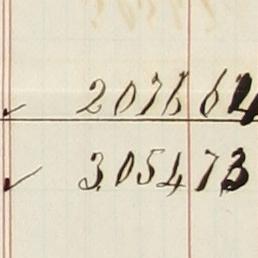 ✓ 2076 64
✓ 305473